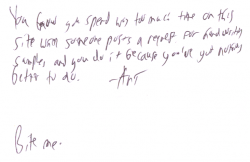 You know you spend way too much time on this
site when someone posts a request for handwriting
samples and you do it because you've got nothing
better to do. -Art
Bite me.